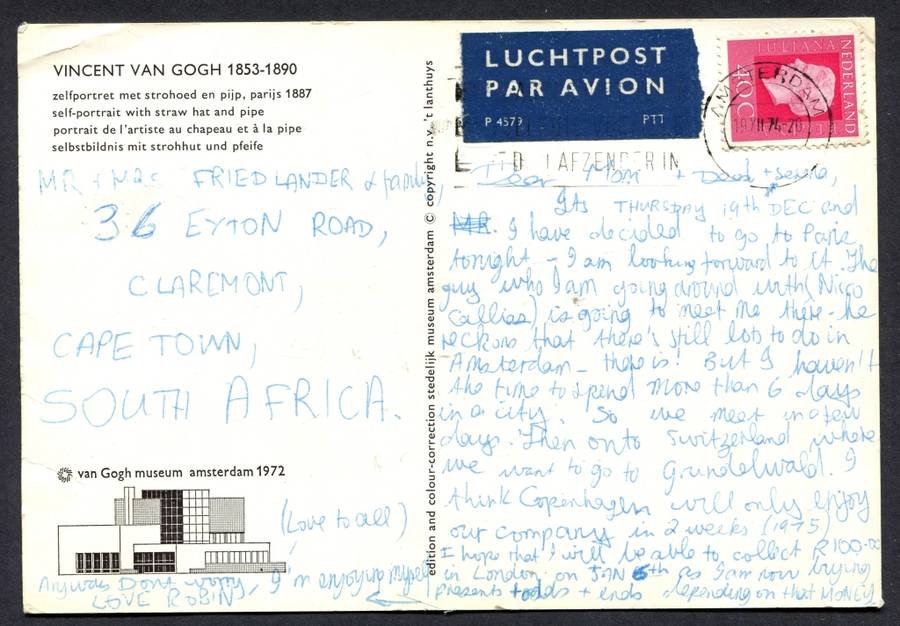 VINCENT VAN GOGH 1853-1890
zelfportret met strohoed en pijp, parijs 1887
self-portrait with straw hat and pipe
portrait de l'artiste au chapeau et à la pipe
selbstbildnis mit strohhut und pfeife
MR + MRS FRIEDLANDER & family,
36 EYTON ROAD,
CLAREMONT,
CAPE TOWN,
SOUTH AFRICA.
van Gogh museum amsterdam 1972
(Love to all)
Anyway Dont worry, I'm enjoying myself
LOVE ROBIN
edition and colour-correction stedelijk museum amsterdam © copyright n.v. 't lanthuys
LUCHTPOST
PAR AVION
P 4579 PTT
JULIANA
NEDERLAND
40c
AMSTERDAM
19.XII.74-20
AFZENDER IN
Dear Mom + Dad + Serena,
Its THURSDAY 19th DEC and
MR. I have decided to go to Paris
tonight - I am looking forward to it. The
guy who I am going around with (Nicco
Callias) is going to meet me there - he
reckons that there's still lots to do in
Amsterdam - there is! But I haven't
the time to spend more than 6 days
in a city. So we meet in a few
days. Then onto Switzerland where
we want to go to Grundelwald. I
think Copenhagen will only enjoy
our company in 2 weeks (1975)
I hope that I will be able to collect R100-00
in London on JAN 6th as I am now buying
presents + odds + ends depending on that MONEY